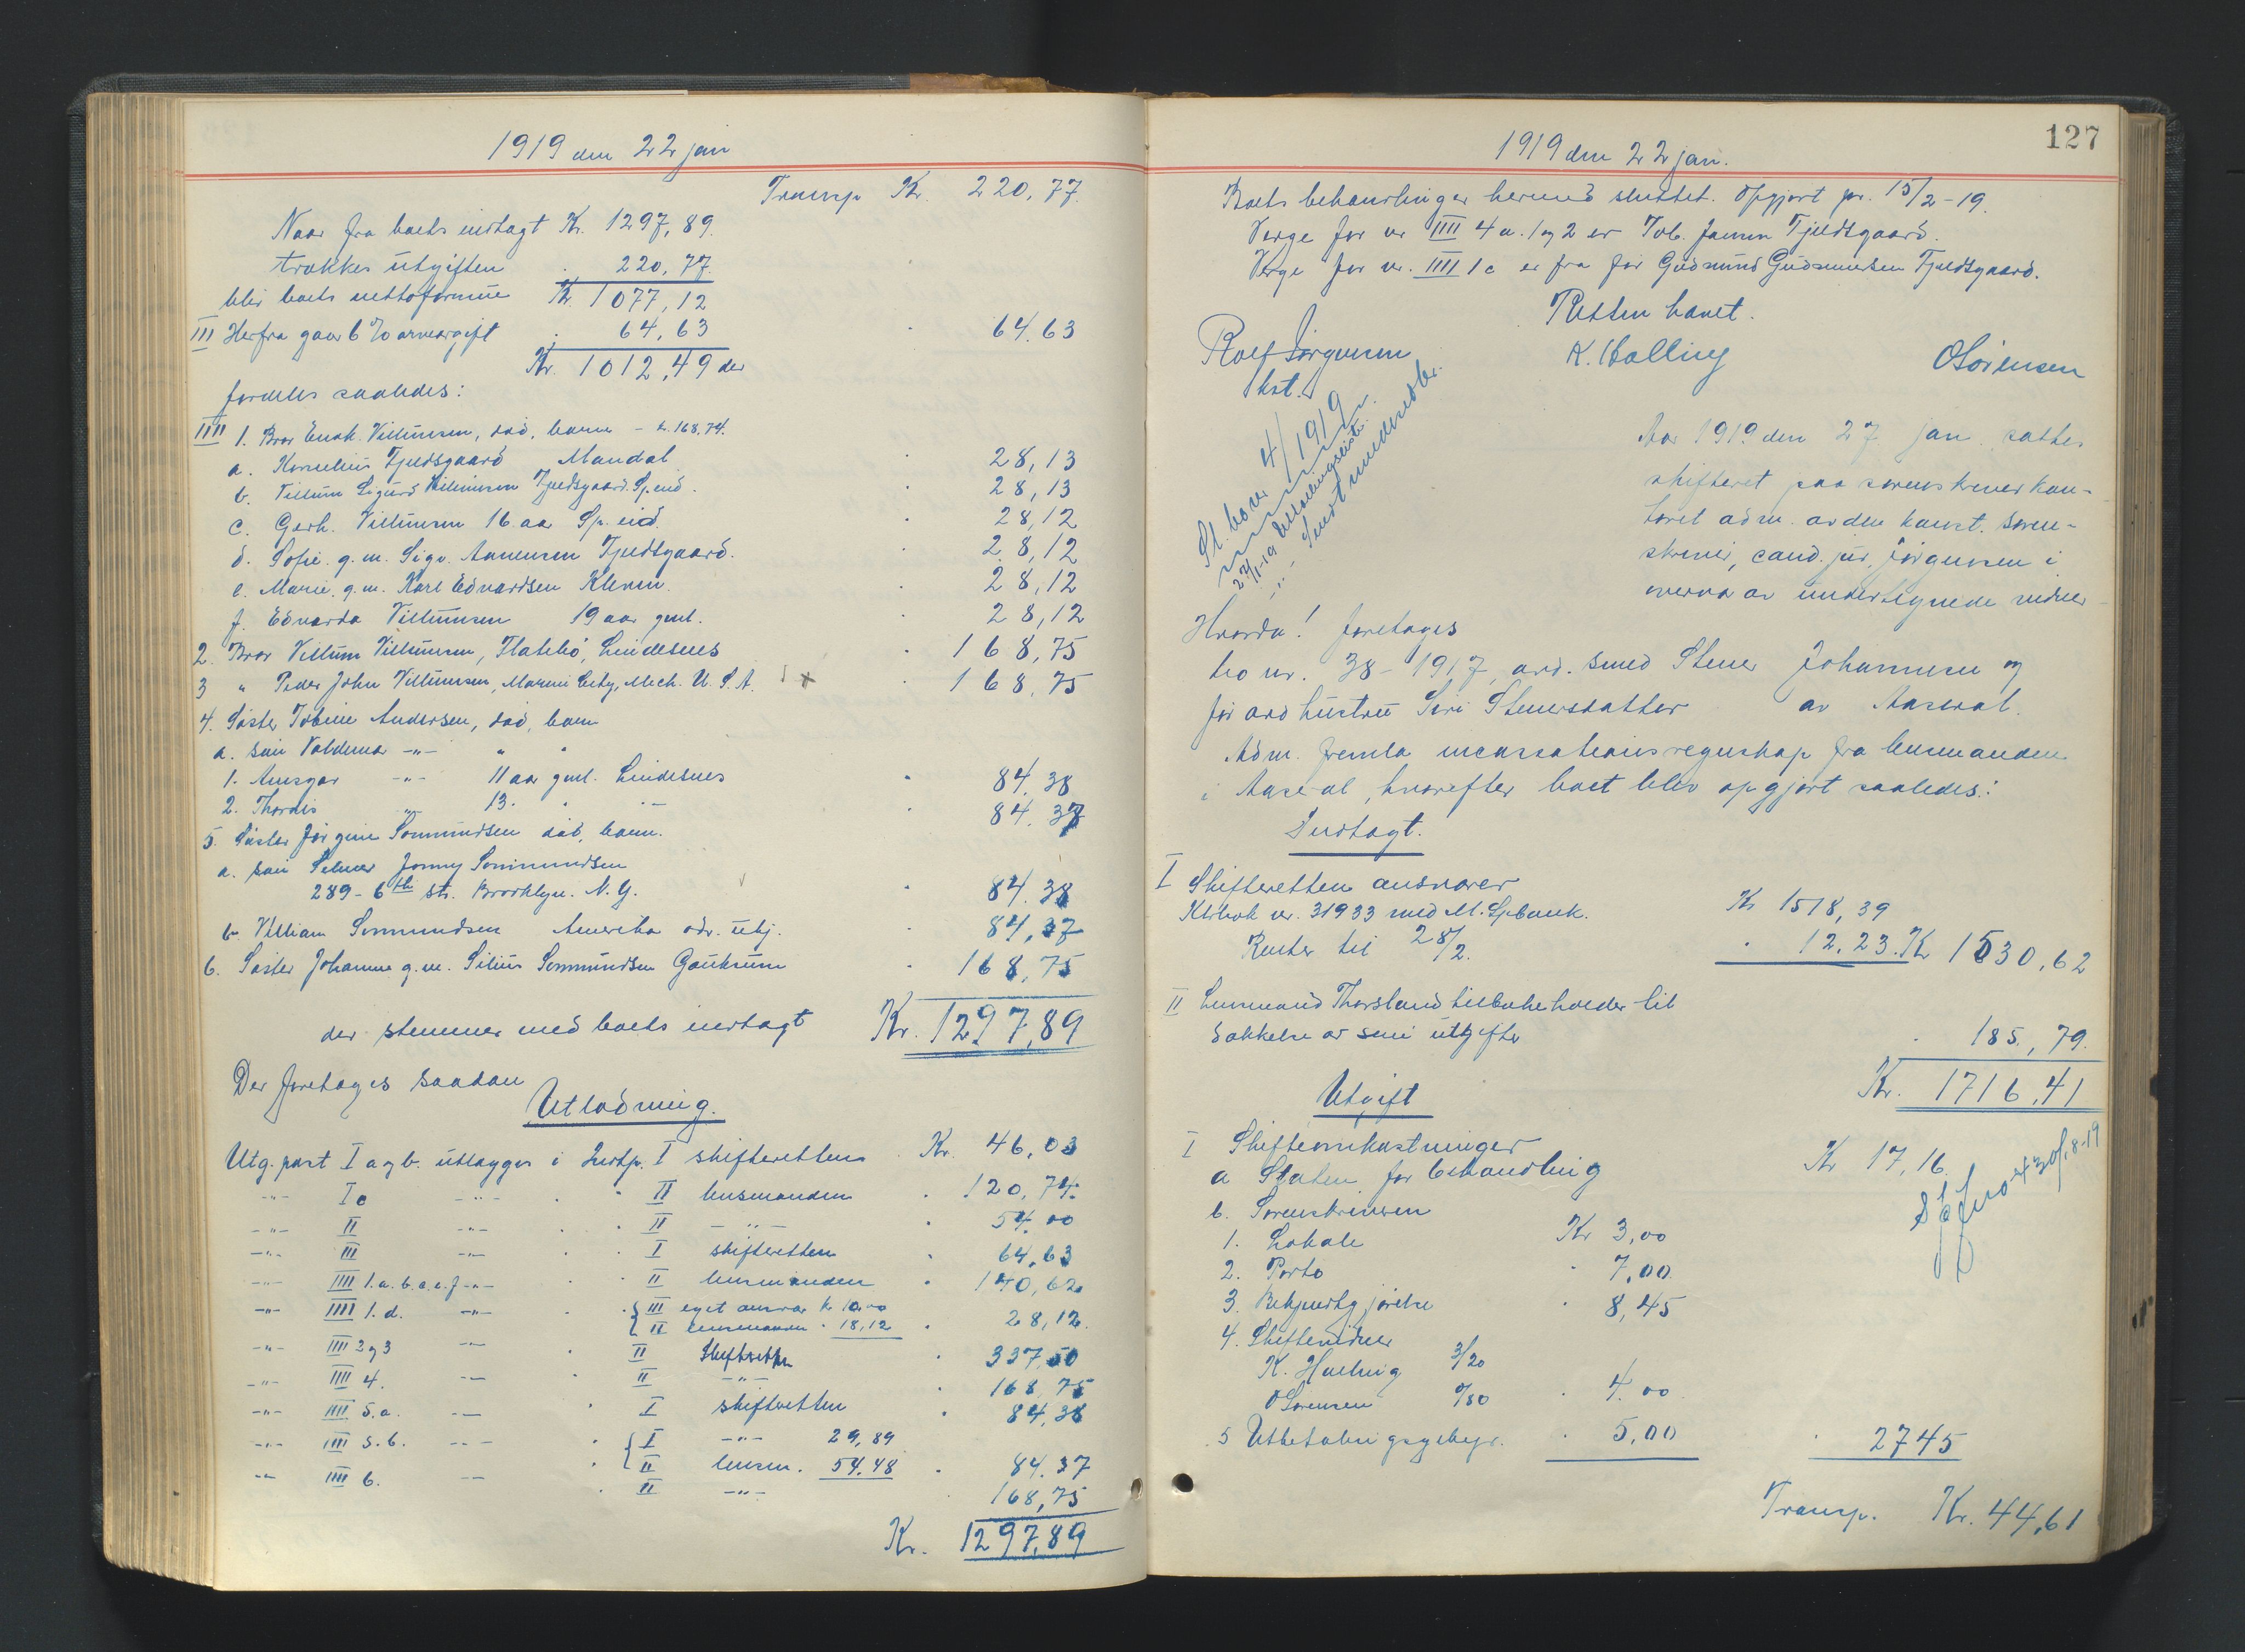 1919 den 22 jan
Transp Kr. 220,77.
Naar fra boets indtagt Kr. 1297,89.
trækkes utgiften . 220,77.
blir boets nettoformue Kr. 1077,12
III Herfra gaar 6 % arveavgift . 64,63 . 64.63
Kr. 1012,49 der
fordeles saaledes:
IIII 1. Bror Enok Villumsen, død, barn - kr. 168.74.
a. Kornelius Fjeldsgaard Mandal . 28,13
b. Villum Sigurd Villumsen Fjeldsgaard. Sp.eid. . 28,13
c. Gerh. Villumsen 16 aar Sp. eid. . 28,12
d. Sofie g. m. Sigv. Aanensen Fjeldsgaard. . 28,12
e. Marie g. m. Karl Edvardsen Kleven. . 28,12
f. Edvarda Villumsen 19 aar gml. . 28,12
2. Bror Villum Villumsen, Flatebø, Lindesnes . 168,75
3 " Peder John Villumsen, Marine City, Mich. U. S. A. . 168,75
4. Søster Tobine Andersen, død, barn
a. søn Valdemar -"- " "
1. Ansgar -"- 11 aar gml. Lindesnes . 84.38
2. Thordis -"- 13. " -"- . 84.37
5. Søster Jørgine Sommundsen død, barn.
a. søn Selmer Jonny Sommundsen
289 - 6th str. Brooklyn. N. Y. . 84.38
b. William Sommundsen Amerika adr. ubj. . 84,37
6. Søster Johanne g. m. Silius Sommundsen Gauksum . 168,75
der stemmer med boets indtagt Kr. 1297,89
Der foretages saadan
Utlodning.
Utg. post I a og b. utlægges i Indtp. I skifteretten . Kr. 46,03
-"- I c -"- . . II lensmanden . 120,74.
-"- II -"- . . II -"- . 54.00
-"- III -"- . . I skifteretten . 64,63
-"- IIII 1.a.b.c.e.f -"- . . II lensmanden . 140,62
-"- IIII 1.d. -"- . { III eget ansvar kr. 10.00
II lensmanden . 18,12 . 28,12.
-"- IIII 2 og 3 -"- . II Skifteretten . 337,50
-"- IIII 4. -"- . II -"- . 168,75
-"- IIII 5.a. -"- . I skifteretten . 84,38
-"- IIII 5.b. -"- . { I -"- 29,89
II lensm. 54.48 . 84.37
-"- IIII 6. -"- . II -"- 168,75
Kr. 1297,89
127
1919 den 22 jan.
Boets behandlinger hermed sluttet. Opgjort pr. 15/2-19.
Verge for nr IIII 4 a. 1 og 2 er Tob. Jansen Fjeldsgaard.
Verge for nr. IIII 1 c er fra før Gudmund Gudmundsen Fjeldsgaard.
Retten hævet.
Rolf Jørgensen K. Halling O Sørensen
kst.
Sl. bo nr 4/1919
22/11-19 Utlodningsliste.
-"- Sendt mindreårbr.
Aar 1919 den 27 jan. sattes
skifteret paa sorenskriverkon-
toret adm. av den konst. soren-
skriver, cand. jur. Jørgensen i
overvær av undertegnede vidner
Hvorda! foretages
bo nr. 38-1917, avd. smed Stener Johannesen og
før avd hustru Siri Stenersdatter av Aaseral.
Adm. fremla incassationsregnskap fra lensmanden
i Aaseral, hvorefter boet blev opgjort saaledes:
Indtagt.
I Skifteretten ansvarer
Kl.bok nr. 31933 med M. Spbank. Kr 1518,39
Renter til 28/2. . 12.23. Kr 1530,62
II Lensmand Thorsland tilbakeholder til
dækkelse av sine utgifter . 185,79.
Kr. 1716,41
Utgift
I Skifteomkostninger
a Staten for behandling Kr 17,16.
b. Sorenskriveren
1. Lokale Kr 3,00
2. Porto . 7,00
3. Bekjendtgjørelse . 8,45
4. Skiftevidner
K. Halling 3/20
O Sørensen 0/80 . 4.00
5 Utbetalingsgebyr. . 5,00 . 2745
Transp. Kr. 44,61